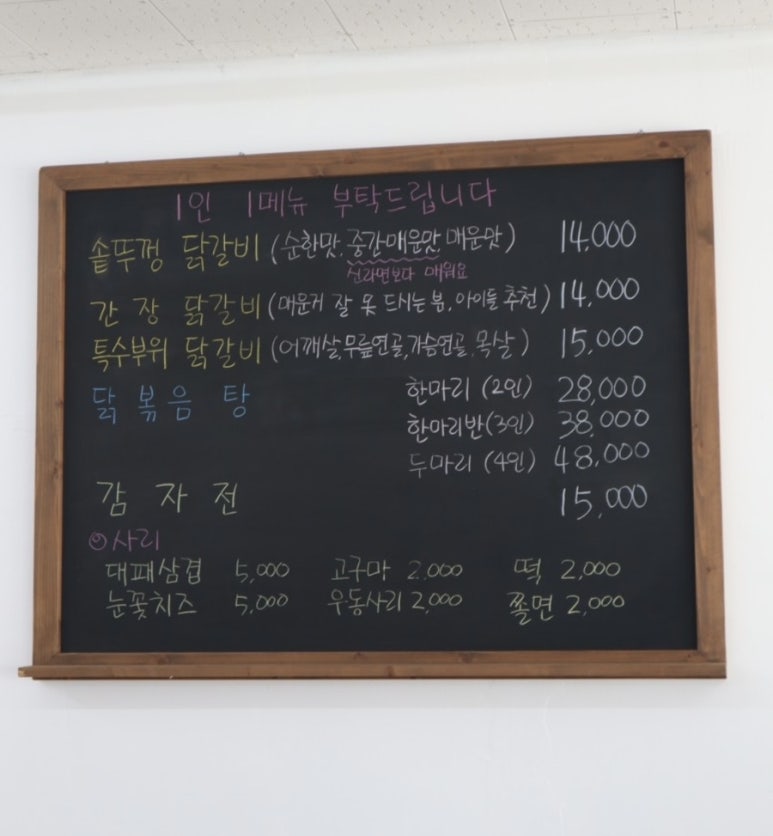 1인 1메뉴 부탁드립니다
솥뚜껑 닭갈비 (순한맛, 중간매운맛, 매운맛) 14,000
신라면보다 매워요
간장 닭갈비 (매운거 잘 못 드시는 분, 아이들 추천) 14,000
특수부위 닭갈비 (어깨살, 무릎연골, 가슴연골, 목살) 15,000
닭볶음탕 한마리 (2인) 28,000
한마리반(3인) 38,000
두마리 (4인) 48,000
감자전 15,000
◎사리
대패삼겹 5,000 고구마 2,000 떡 2,000
눈꽃치즈 5,000 우동사리 2,000 쫄면 2,000